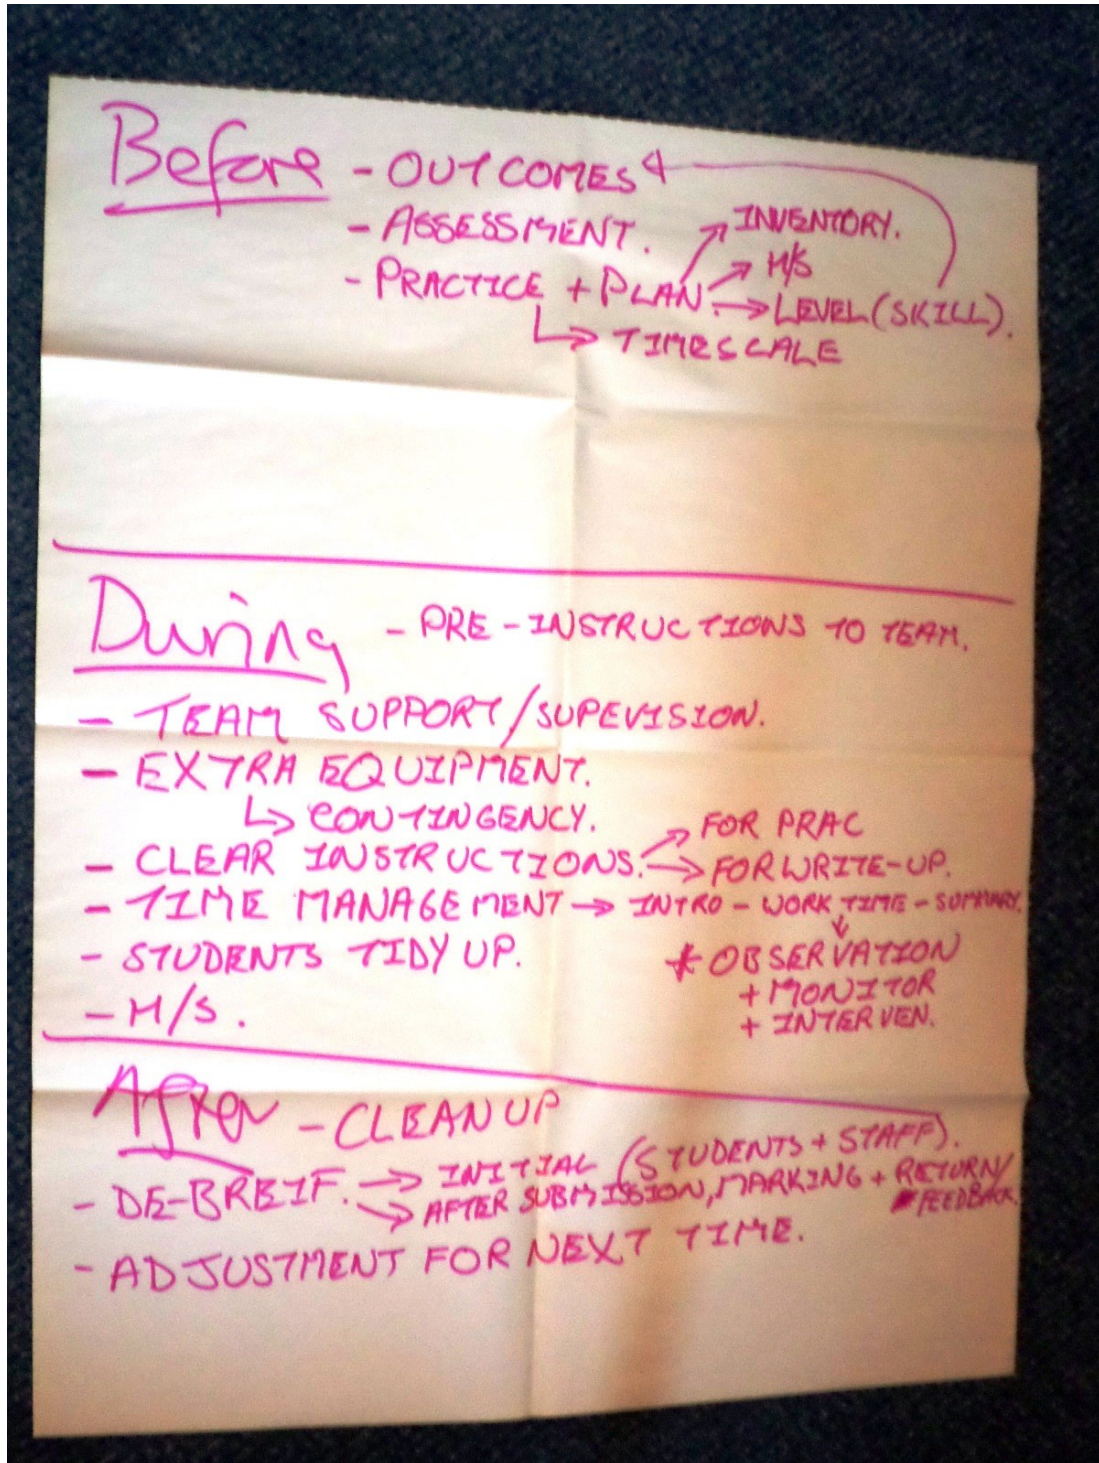 Before - OUTCOMES
- ASSESSMENT.
INVENTORY.
- PRACTICE + PLAN.
H/S
LEVEL (SKILL).
TIMESCALE
During - PRE-INSTRUCTIONS TO TEAM.
- TEAM SUPPORT/SUPEVISION.
- EXTRA EQUIPMENT.
CONTINGENCY.
- CLEAR INSTRUCTIONS.
FOR PRAC
FOR WRITE-UP.
- TIME MANAGEMENT → INTRO - WORK TIME - SUMMARY.
* OBSERVATION
+ MONITOR
+ INTERVEN.
- STUDENTS TIDY UP.
- H/S.
After - CLEAN UP
- DE-BREIF. → INITIAL (STUDENTS + STAFF).
→ AFTER SUBMISSION, MARKING + RETURN/
FEEDBACK.
- ADJUSTMENT FOR NEXT TIME.